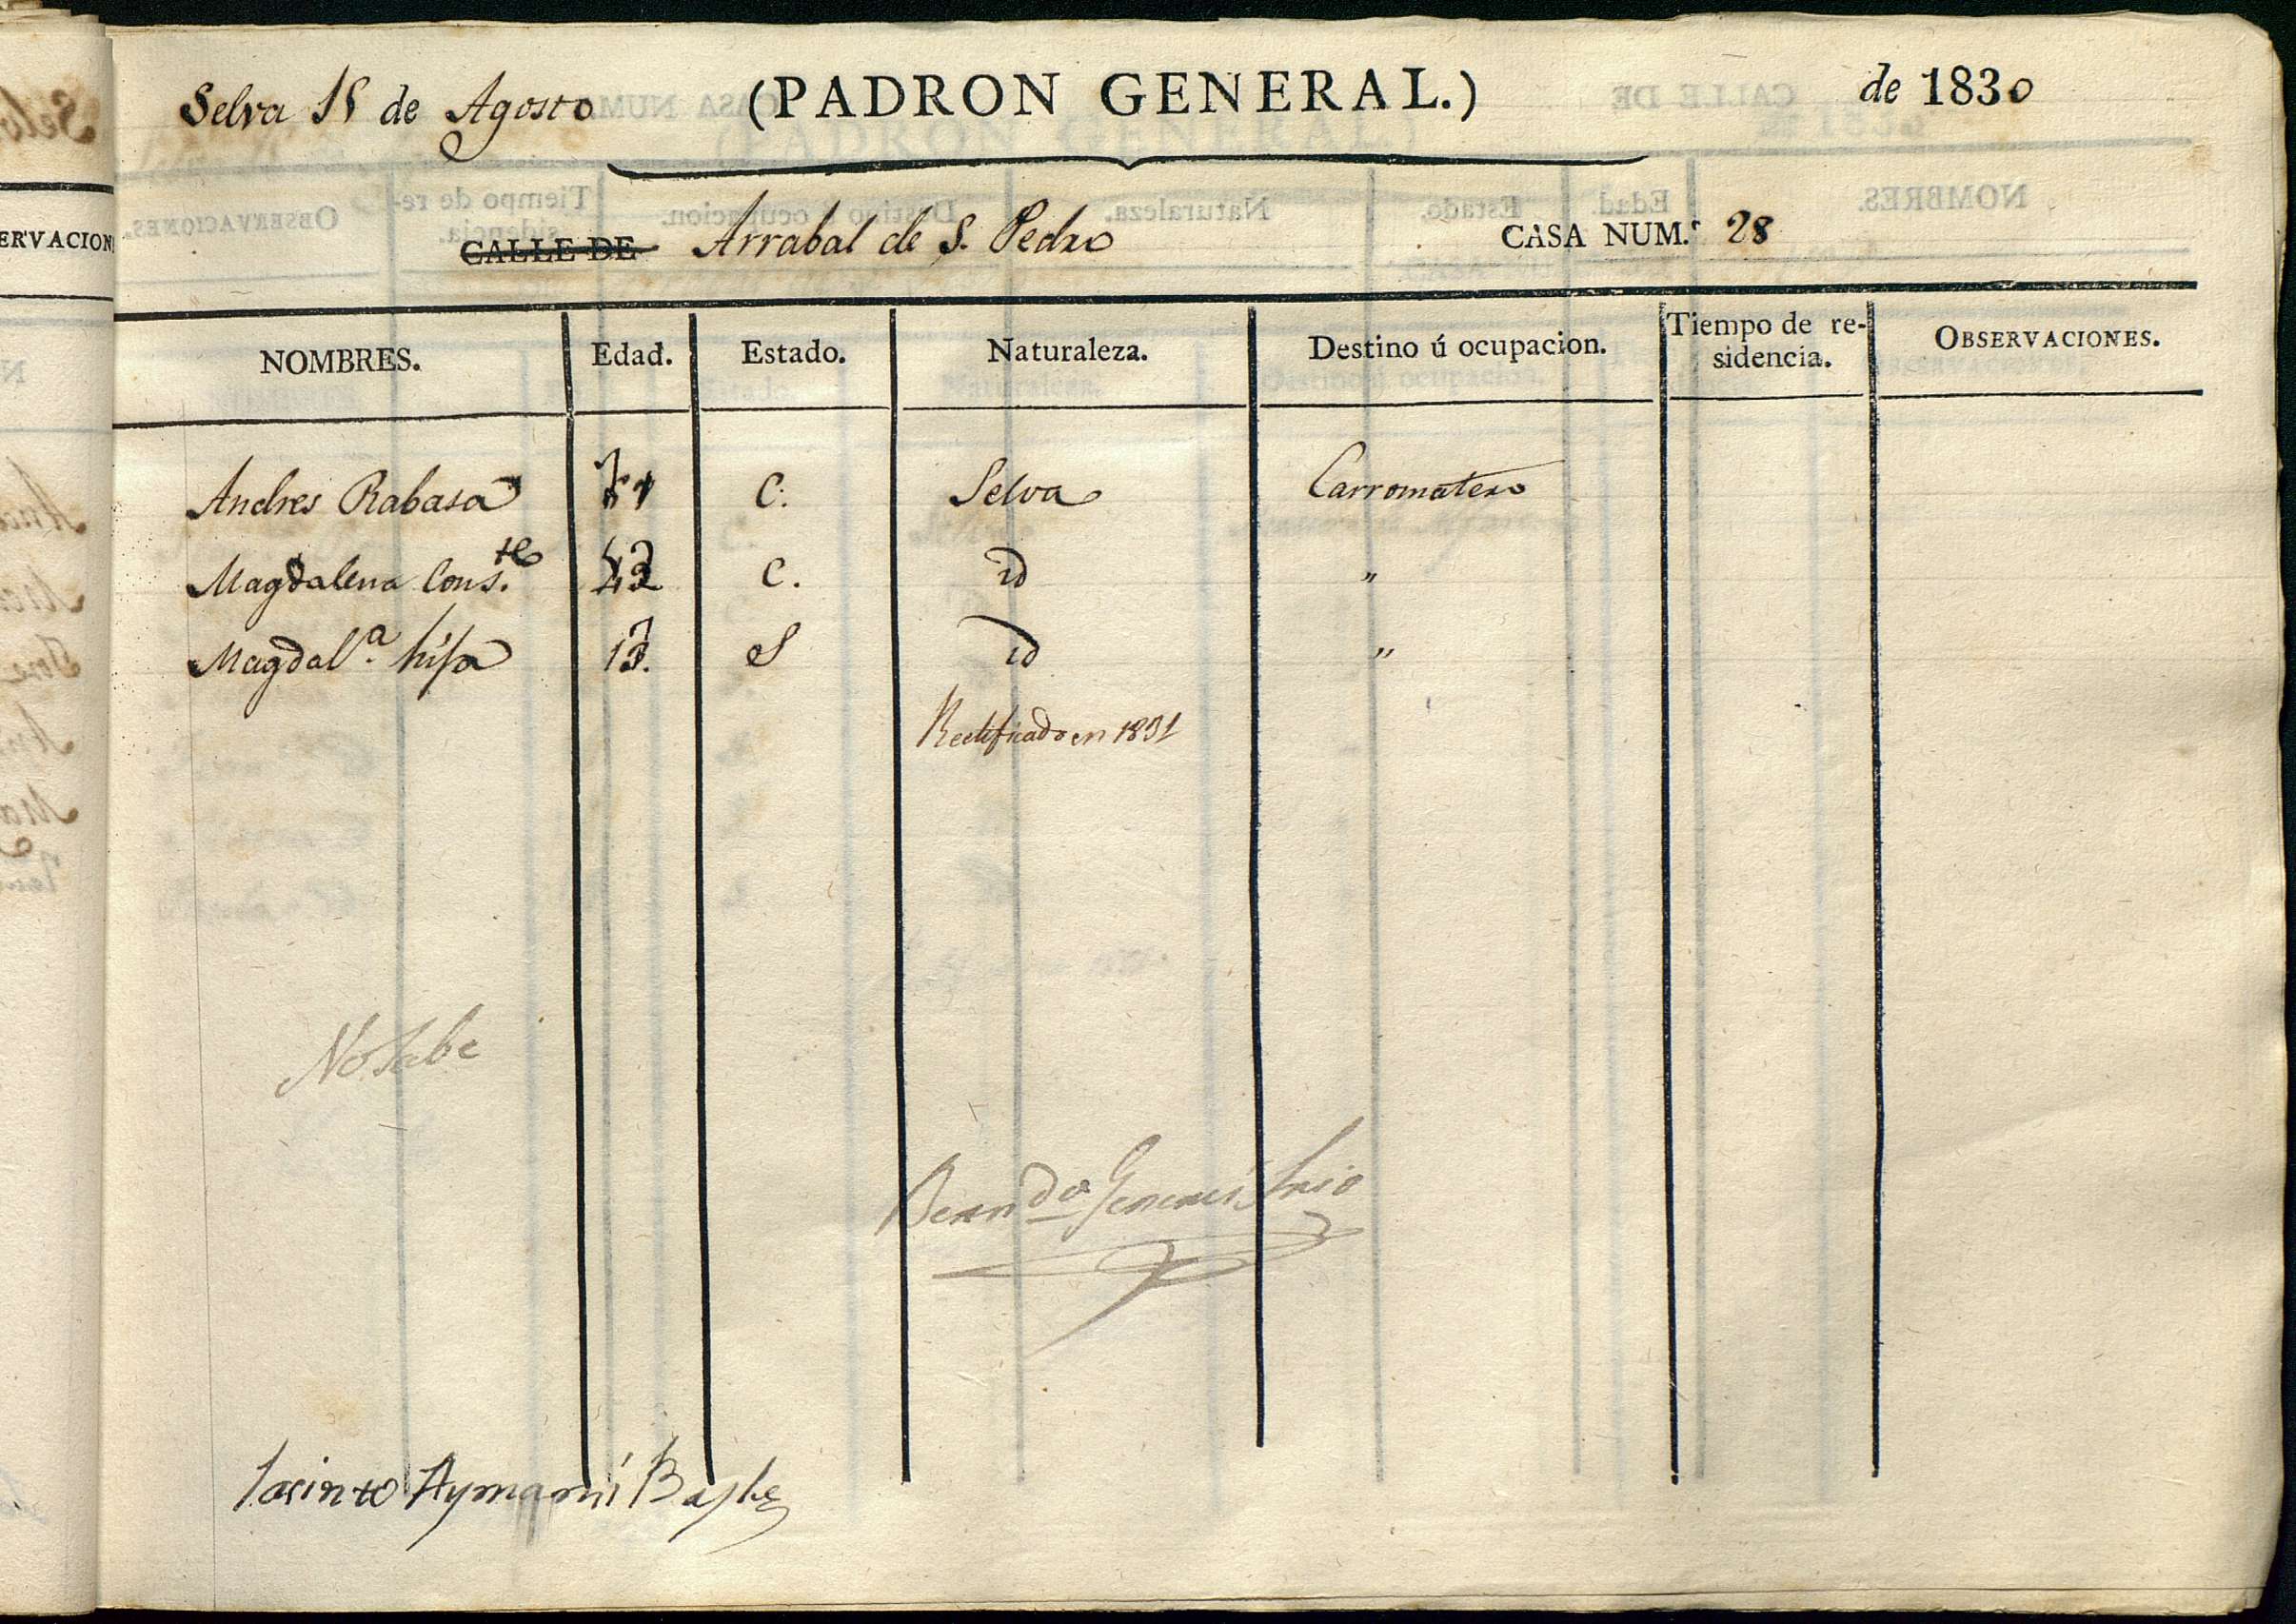 Selva 18 de Agosto (PADRON GENERAL.) de 1830
CALLE DE Arrabal de S. Pedro CASA NUM.º 28
NOMBRES. Edad. Estado. Naturaleza. Destino ú ocupacion. Tiempo de re-sidencia. OBSERVACIONES.
Andres Rabasa C. Selva Carromatero
Magdalena Cons.te 43 C. id "
Magdal.a hija 13. S id "
Rectificado en 1831
No sabe
Jacinto Aymamí Bayle